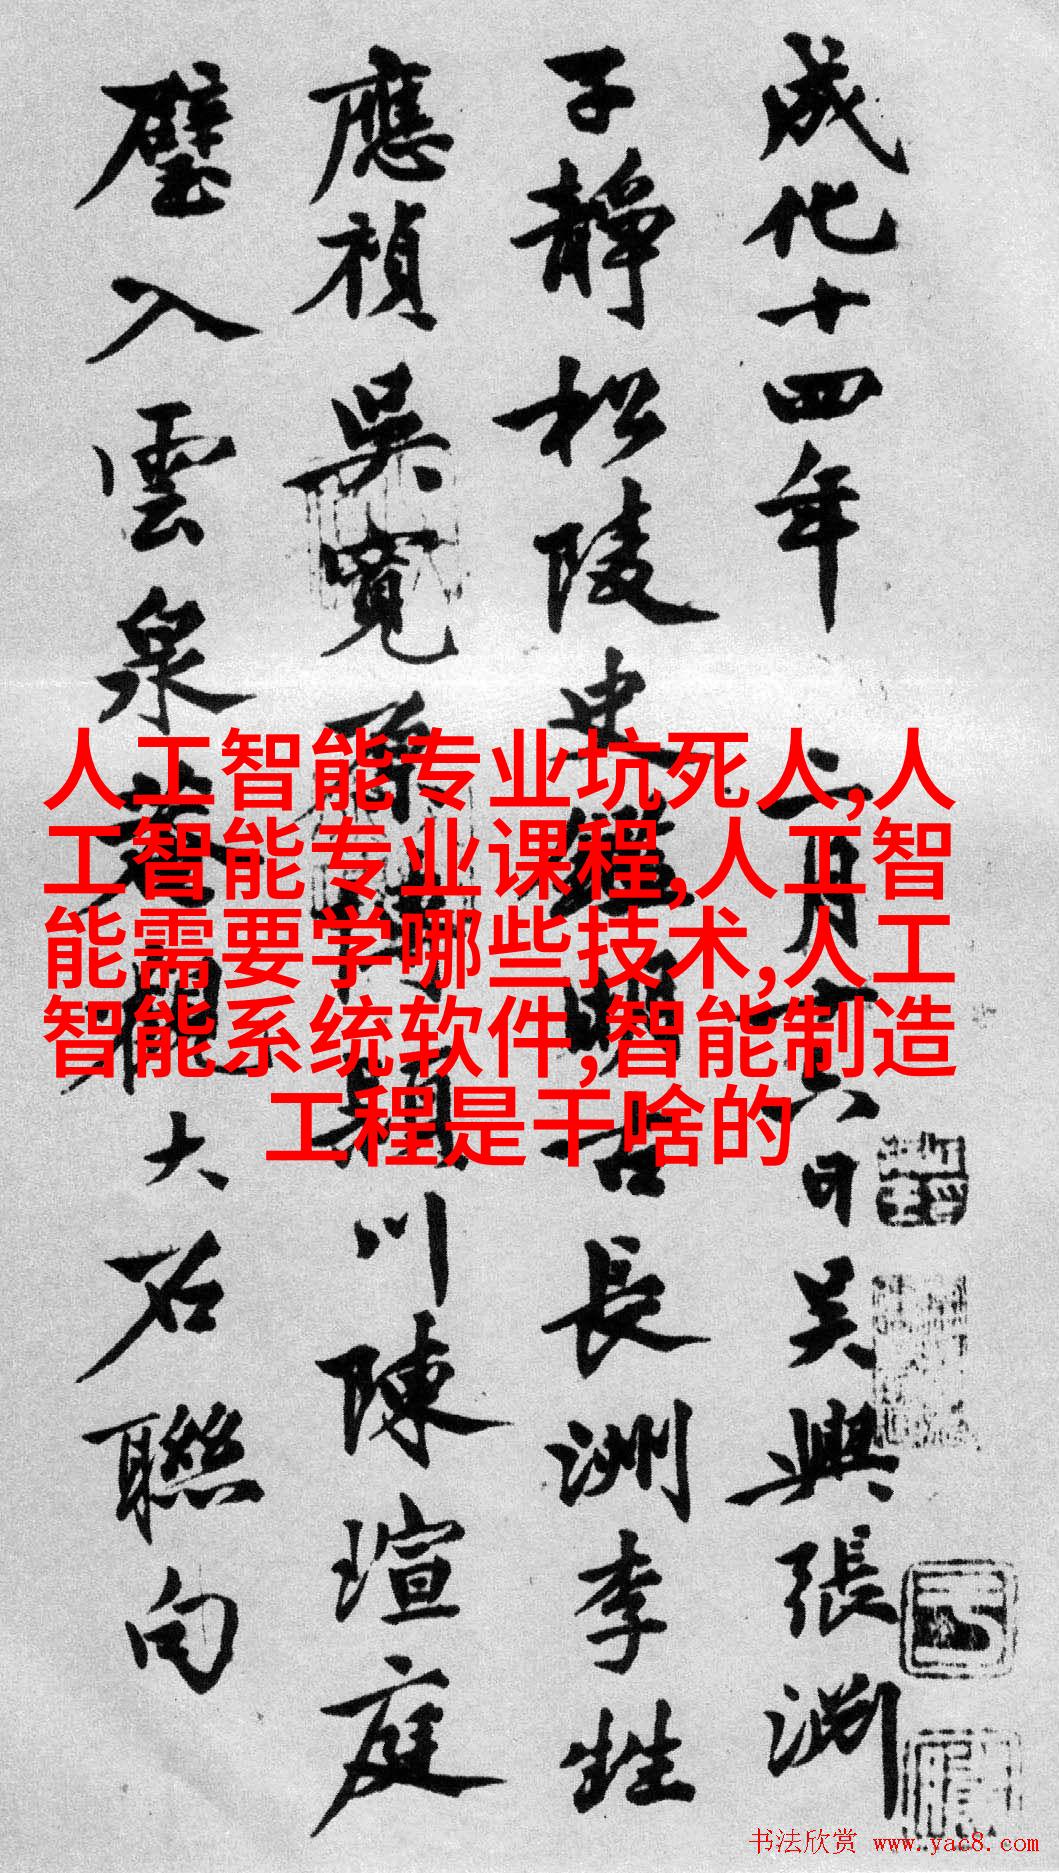 成化十四年二月十六日吳興張淵
子靜松陵史鑑明古長洲李甡
應禎吳寬原博潁川陳瑄庭
璧入雲泉菴觀大石聯句
人工智能专业坑死人,人
工智能专业课程,人工智
能需要学哪些技术,人工
智能系统软件,智能制造
工程是干啥的
书法欣赏 www.yac8.com